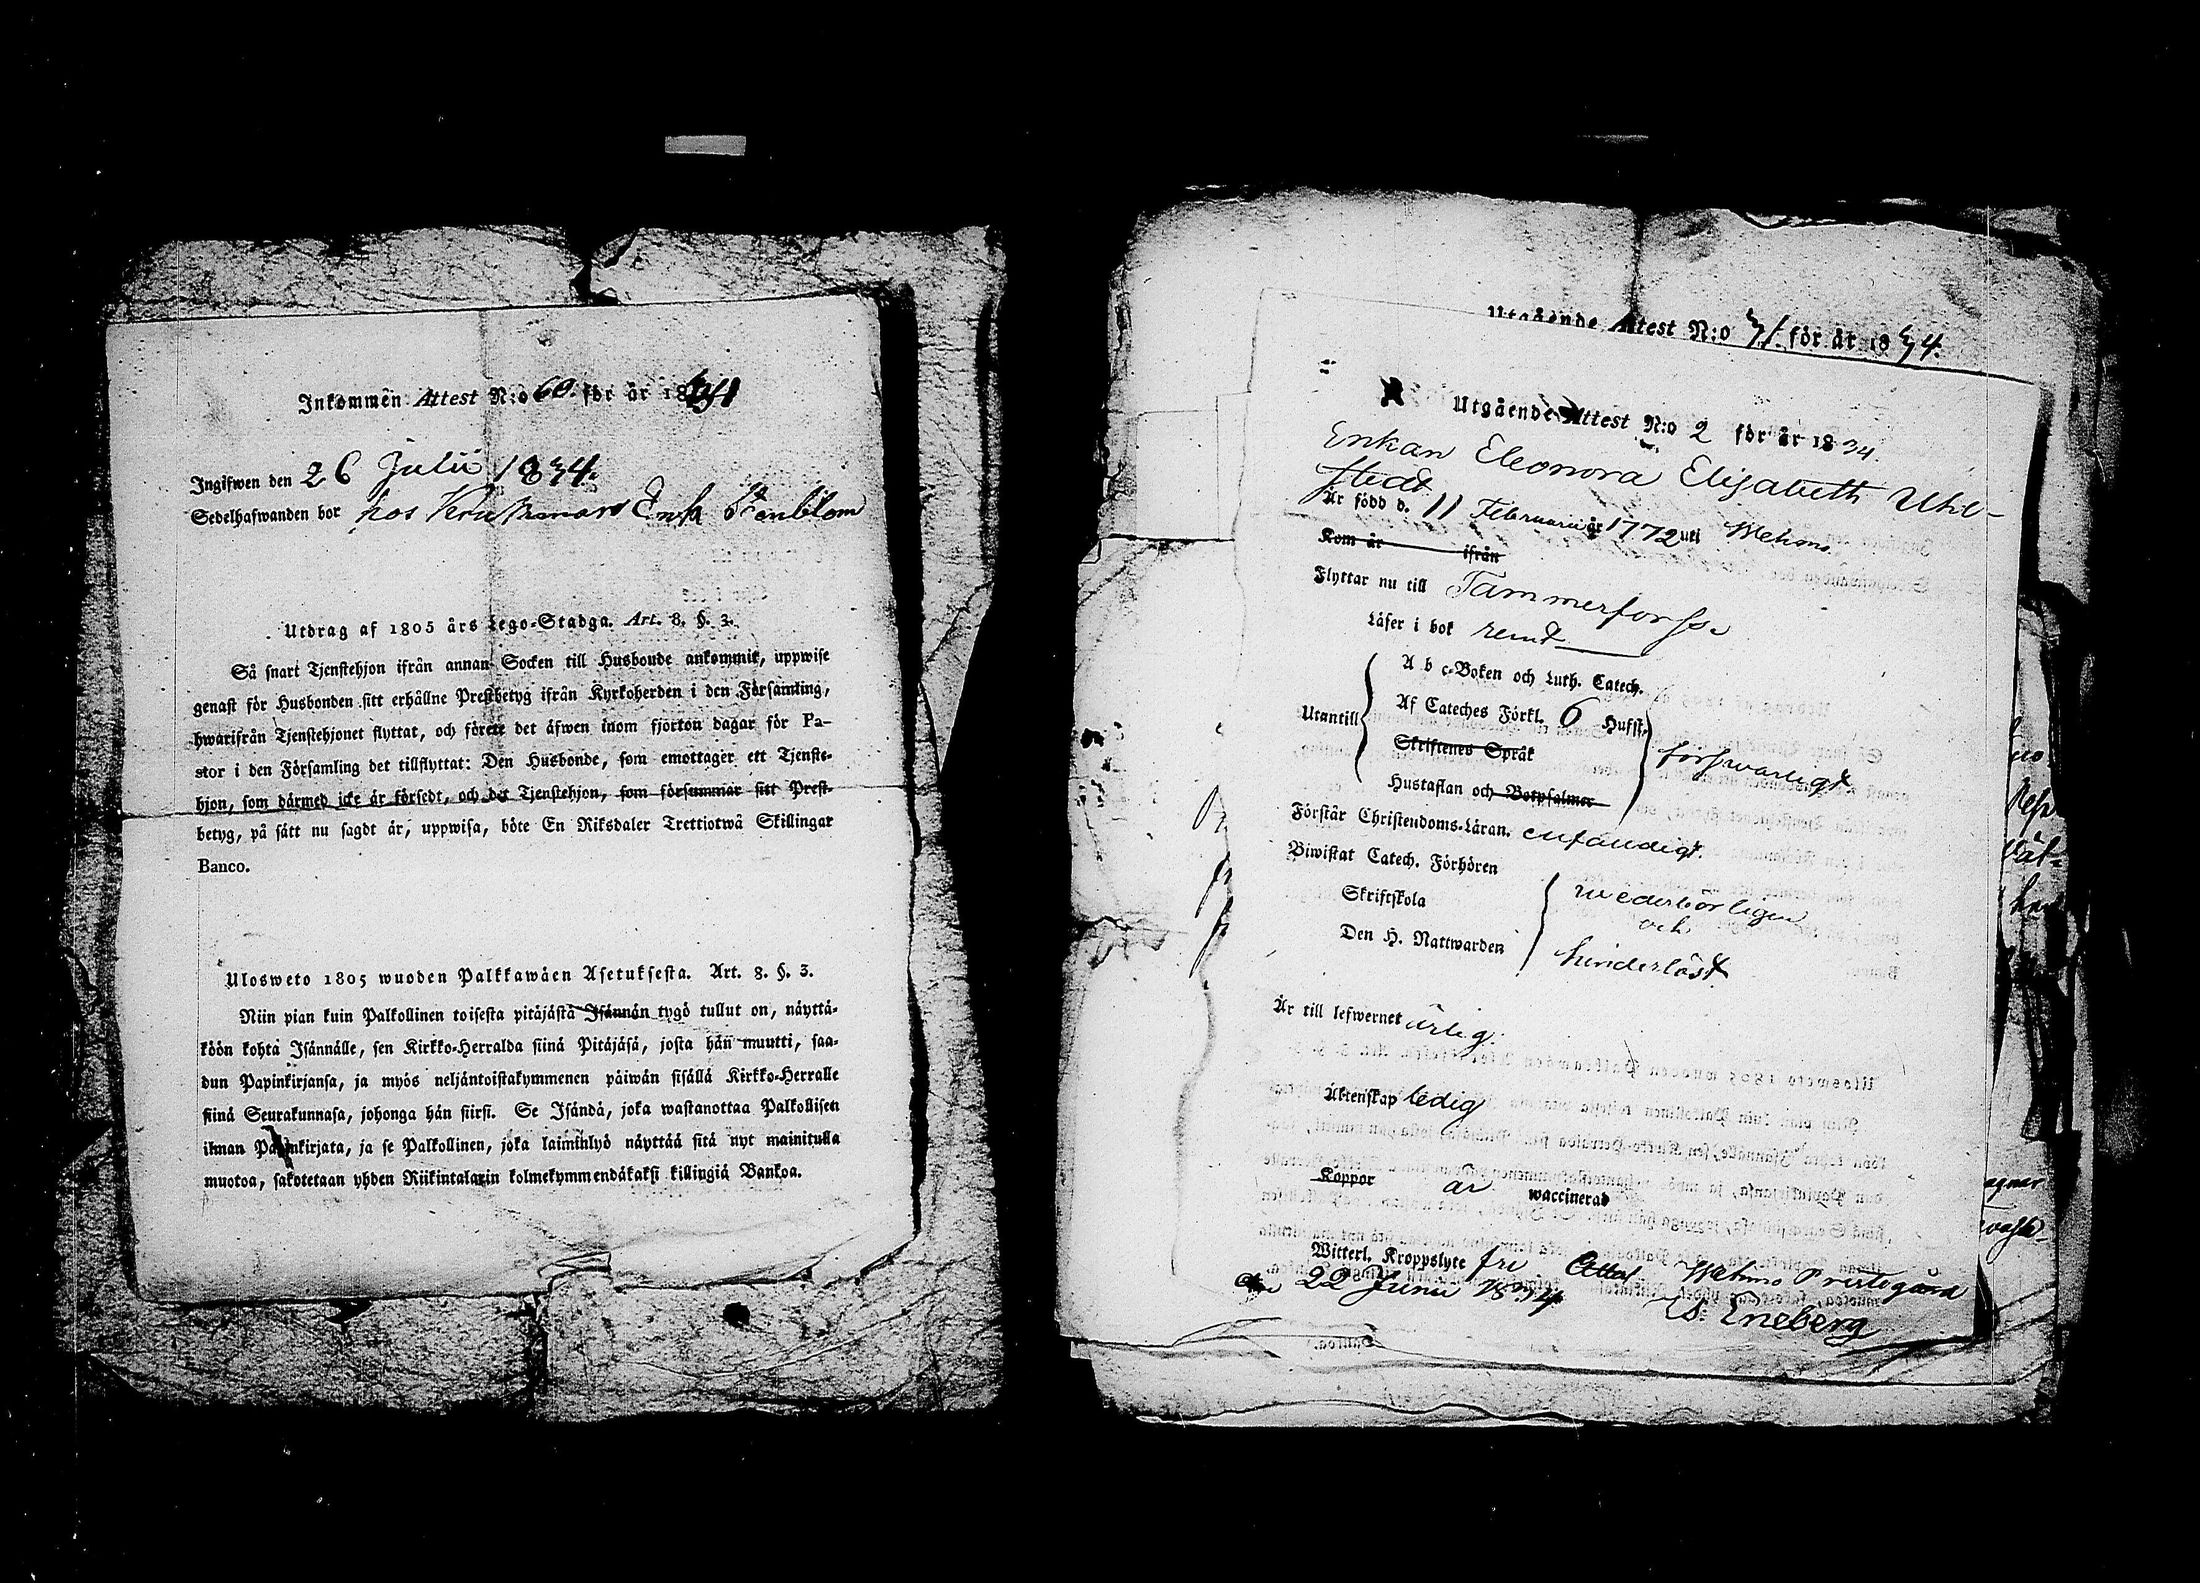 Inkommen Attest N:o 60. för år 1834
Ingifwen den 26 Julii 1834.
Sedelhafwanden bor hos Enk Stenblom
Utdrag af 1805 års Lego-Stadga. Art. 8. §. 3.
Så snart Tjenstehjon ifrån annan Socken till Husbonde ankommit, uppwise
genast för Husbonden sitt erhållne Prestbetyg ifrån Kyrkoherden i den Församling,
hwarifrån Tjenstehjonet flyttat, och förete det äfwen inom fjorton dagar för Pa-
stor i den Församling det tillflyttat: Den Husbonde, som emottager ett Tjenste-
hjon, som därmed icke är försedt, och det Tjenstehjon, som försummar sitt Prest-
betyg, på sätt nu sagdt är, uppwisa, böte En Riksdaler Trettiotwå Skillingar
Banco.
Ulosweto 1805 wuoden Palkkawäen Asetuksesta. Art. 8. §. 3.
Niin pian kuin Palkollinen toisesta pitäjästä Isännän tygö tullut on, näyttä-
köön kohta Isännälle, sen Kirkko-Herralda siinä Pitäjäsä, josta hän muutti, saa-
dun Papinkirjansa, ja myös neljäntoistakymmenen päiwän sisällä Kirkko-Herralle
siinä Seurakunnasa, johonga hän siirsi. Se Isändä, joka wastanottaa Palkollisen
ilman Papinkirjata, ja se Palkollinen, joka laimihlyö näyttää sitä nyt mainitulla
muotoa, sakotetaan yhden Riikintalarin kolmekymmendäkaksi killingiä Bankoa.
Utgående Attest N:o 31. för år 1834.
Utgående Attest N:o 2 för år 1834.
Enkan Eleonora Elisabeth Uhl-
stedt
Är född d. 11 Februarii år 1772 uti Wehmo
Kom år ifrån
Flyttar nu till Tammerforss.
Läser i bok rendt
A b c-Boken och Luth. Catech.
Utantill Af Cateches Förkl. 6 Hufst.
Skriftenes Språk
Hustaflan och Botpsalmer
försvarligt
Förstår Christendoms-Läran. enfaldigt.
Biwistat Catech. Förhören
Skriftskola
Den H. Nattwarden
wederbörligen
och
hinderlöst
Är till lefwernet ärlig.
Äktenskap ledig
Koppor är waccinerad
Witterl. Kroppslyte fri Attest Wehmo Prestegård
den 22 Junii 1834 Eneberg